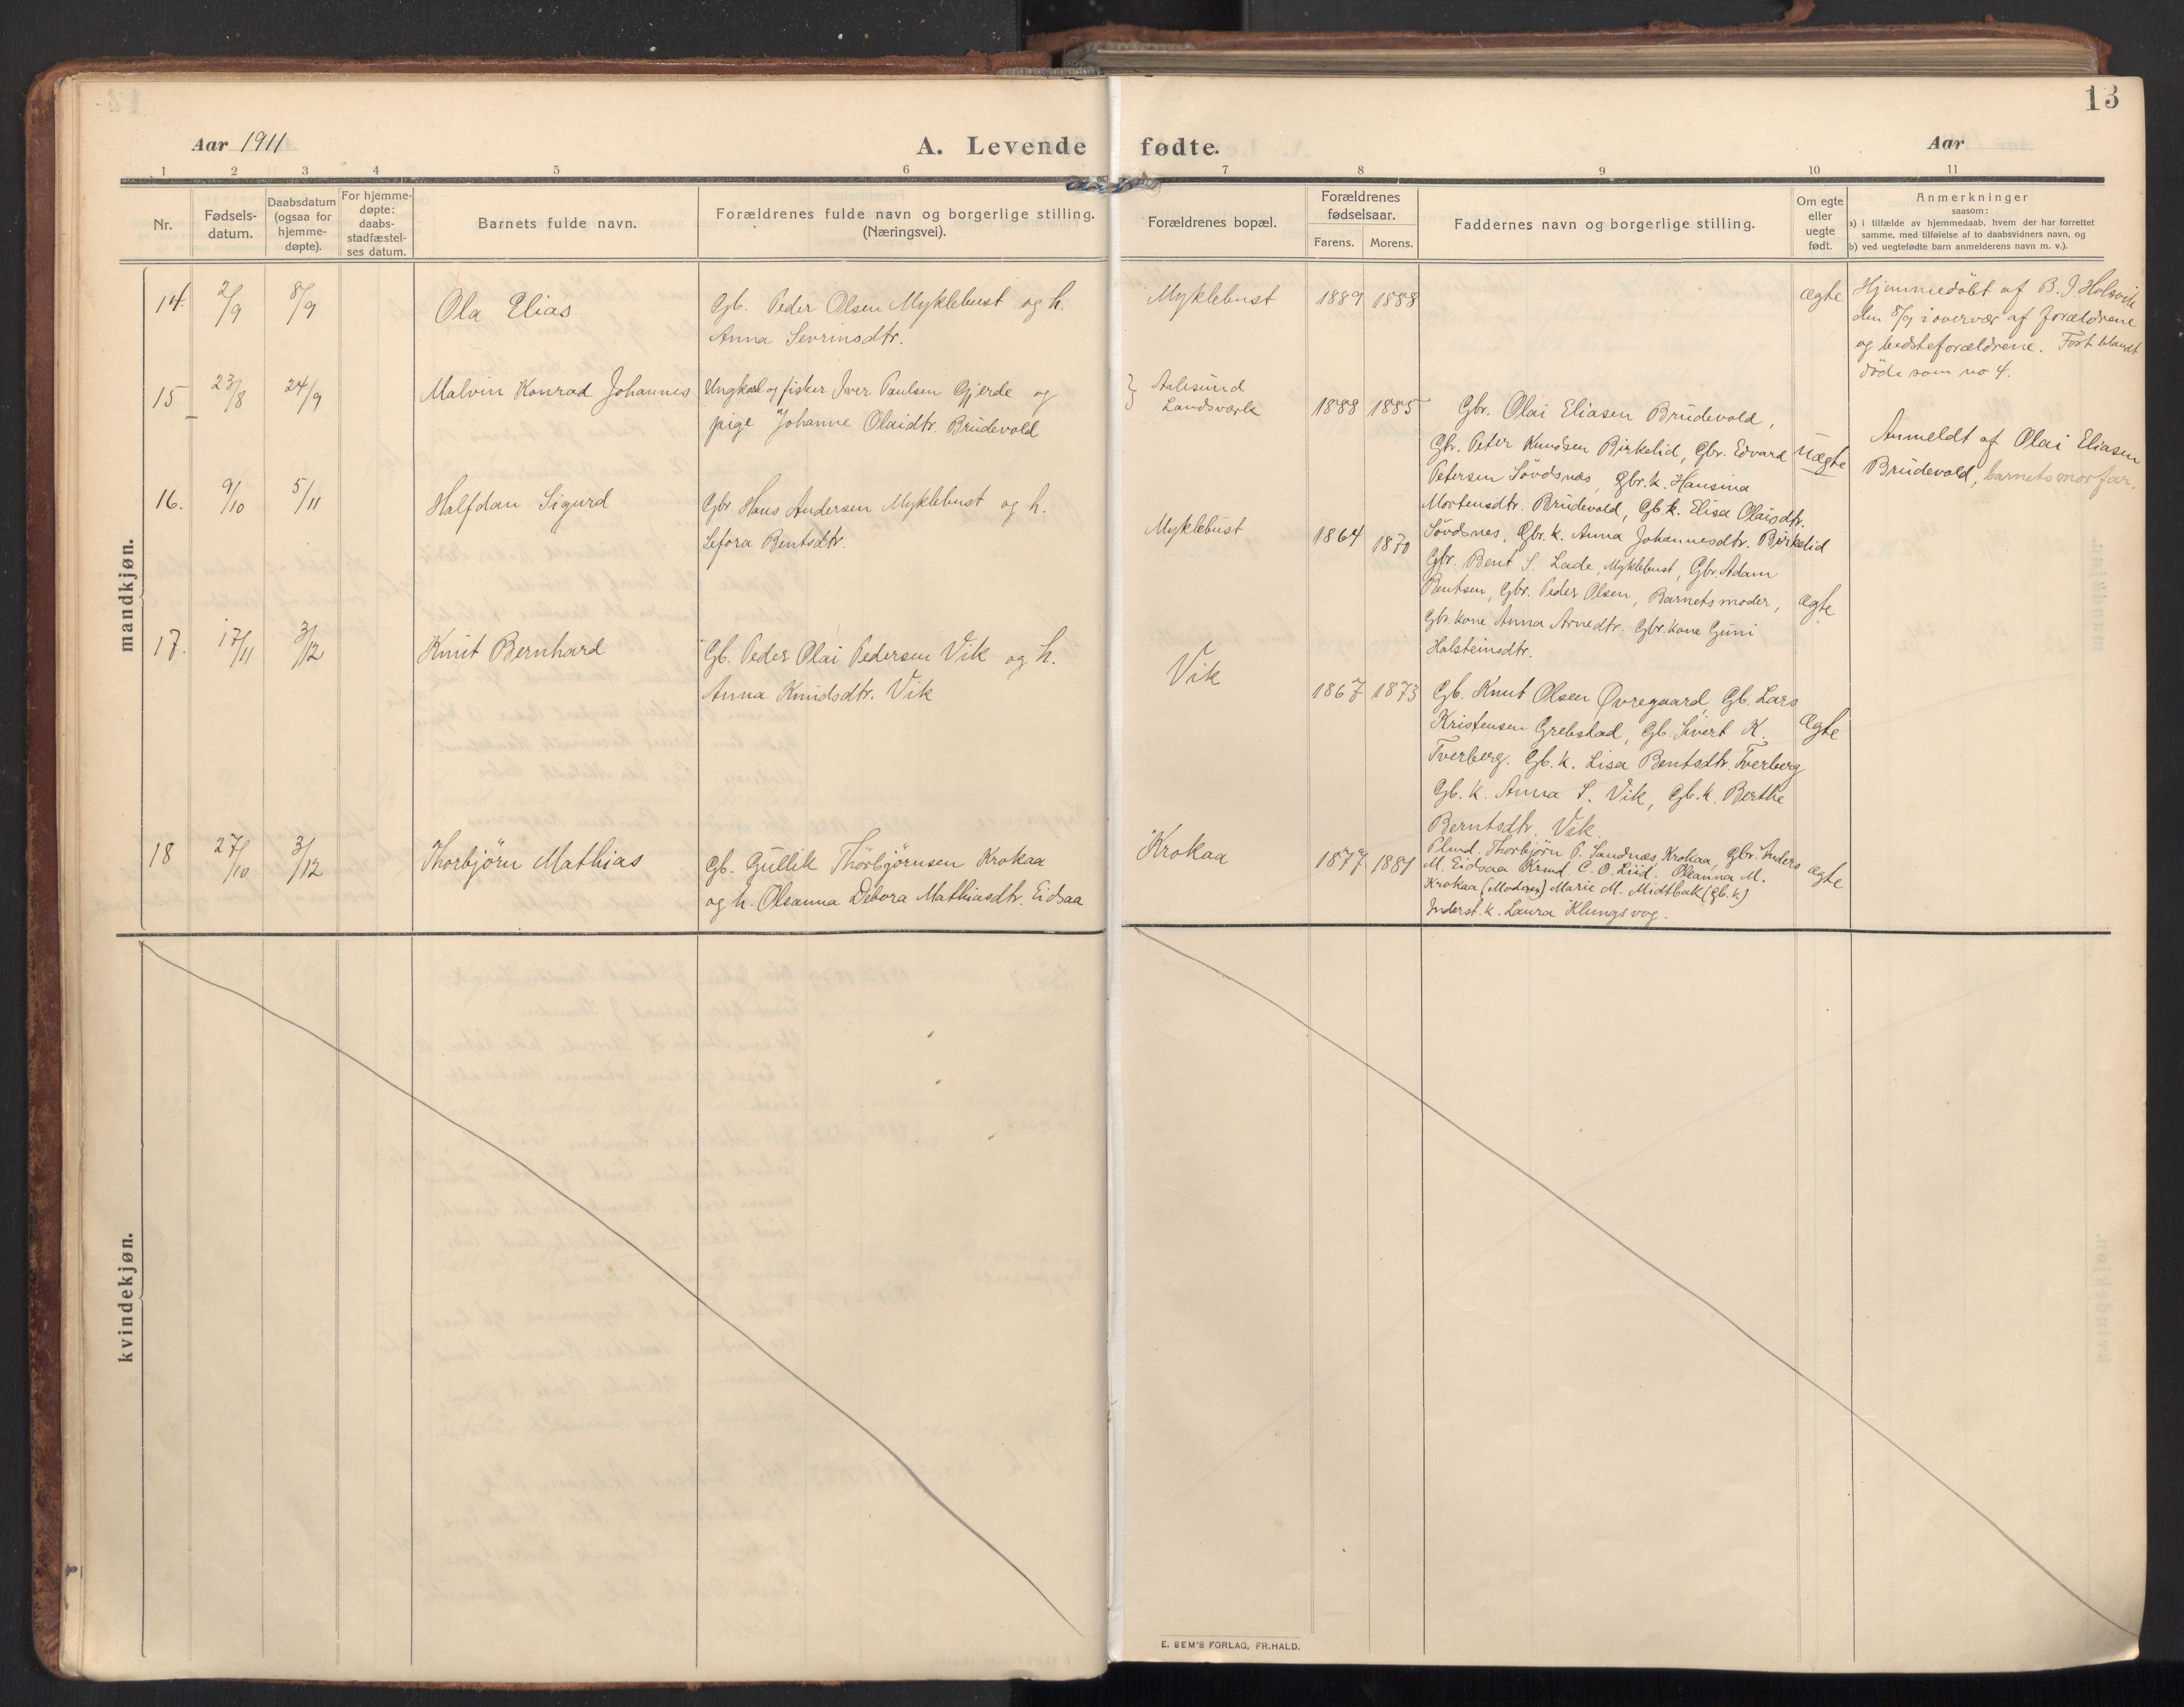 13
Aar 1911
A. Levende fødte.
Aar
1 2 3 4 5 6 7 8 9 10 11
Nr.
Fødsels-
datum.
Daabsdatum
(ogsaa for
hjemme-
døpte).
For hjemme-
døpte:
daabs-
stadfæstel-
ses datum.
Barnets fulde navn.
Forældrenes fulde navn og borgerlige stilling.
(Næringsvei).
Forældrenes bopæl.
Forældrenes
fødselsaar.
Farens. Morens.
Faddernes navn og borgerlige stilling.
Om egte
eller
uegte
født.
Anmerkninger
saasom:
a) i tilfælde av hjemmedaab, hvem der har forrettet
samme, med tilføielse af to daabsvidners navn, og
b) ved uegtefødte barn anmelderens navn m. v.).
mandkjøn.
14. 2/9 8/9
Ola Elias
Gb. Peder Olsen Myklebust og h.
Anna Sevrinsdtr.
Myklebust
1889 1888
ægte
Hjemmedöbt af B. J Holsvik
den 8/9 i overvær af forældrene
og bedsteforældrene. Först blandt
döde som no 4.
15 23/8 24/9
Malvin Konrad Johannes
Ungkarl og fisker Iver Paulsen Gjerde og
pige Johanne Olaidtr. Brudevold
Aalesund
Landsværk
1888 1885
Gbr. Olai Eliasen Brudevold,
Gbr. Peter Knudsen Birkelid, Gbr. Edvard
Petersen Sövdsnæs, Gbr. k. Hansina
Mortensdtr. Brudevold, Gb. k. Elisa Olaisdtr.
Sövdsnes, Gbr. k. Anna Johannesdtr. Birkelid
Uægte
Anmeldt af Olai Eliasen
Brudevold, barnets morfar.
16. 9/10 5/11
Halfdan Sigurd
Gbr. Hans Andersen Myklebust og h.
Sefora Bentsdtr.
Myklebust
1864 1870
Gbr. Bent S. Lade, Myklebust, Gbr. Adam
Bentsen, Gbr. Peder Olsen, Barnets moder,
Gbr. kone Anna Arnedtr. Gbr. kone Guni
Holsteinsdtr.
ægte
17. 17/11 3/12
Knut Bernhard
Gb. Peder Olai Pedersen Vik og h.
Anna Knudsdtr. Vik
Vik
1867 1873
Gb. Knut Olsen Øvregaard, Gb. Lars
Kristensen Grebstad, Gb. Sivert K.
Tverberg. Gb. k. Lisa Bentsdtr. Tverberg
Gb. k. Anna S. Vik, Gb. k. Berthe
Berntsdtr. Vik.
Ægte
18 27/10 3/12
Thorbjörn Mathias
Gb. Gullik Thorbjörnsen Krokaa
og h. Oleanna Debora Mathiasdtr. Eidsaa
Krokaa
1877 1881
Plmd. Thorbjörn P. Sandnæs, Krokaa, Gbr. Anders
M. Eidsaa Krmd. C. O. Liid. Oleanna M.
Krokaa (Moderen) Marie M. Midtbak (gb. k)
Inderst. k. Laura Klungsvog.
ægte
kvindekjøn.
E. SEM'S FORLAG, FR.HALD.